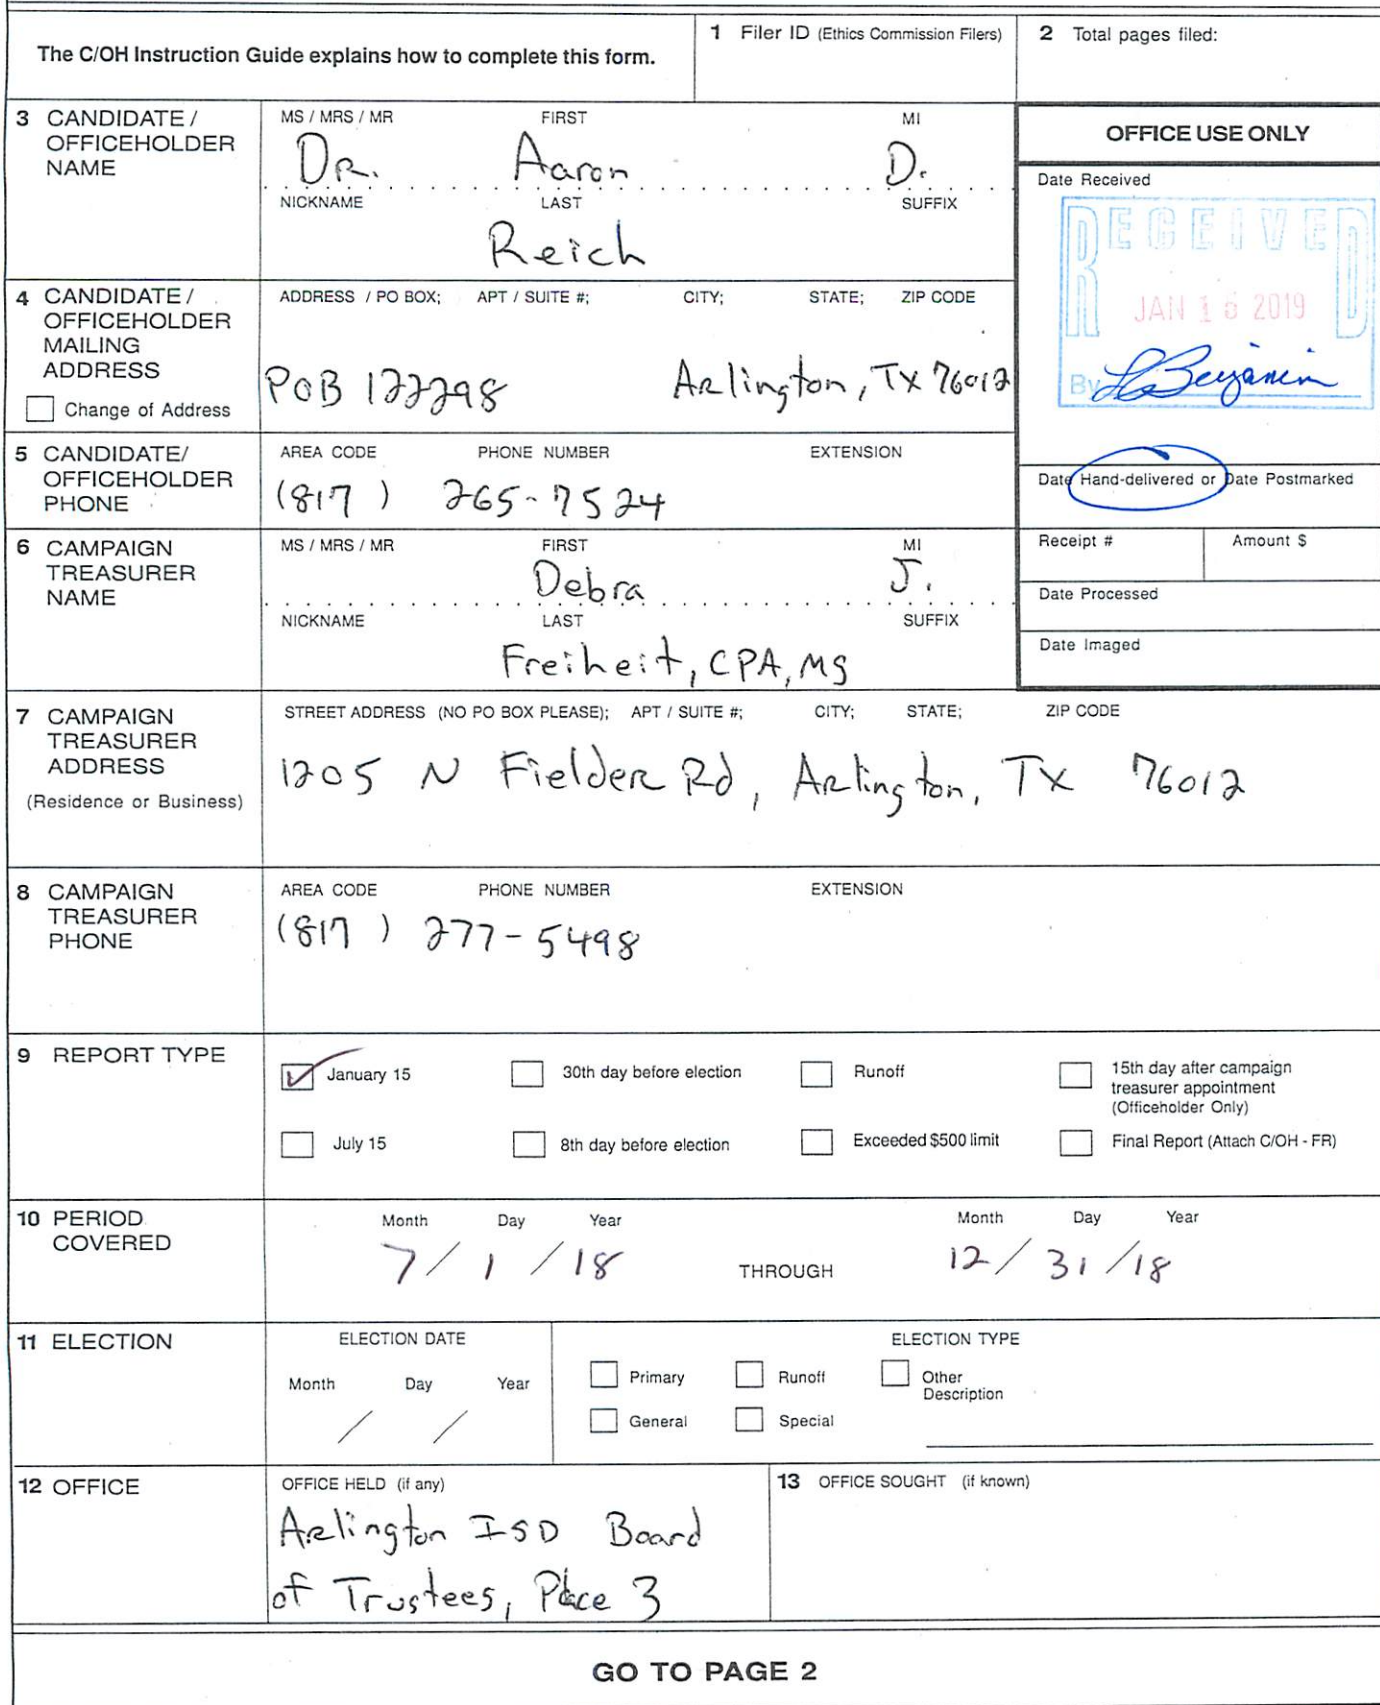 The C/OH Instruction Guide explains how to complete this form.
1 Filer ID (Ethics Commission Filers)
2 Total pages filed:
3 CANDIDATE / OFFICEHOLDER NAME
MS / MRS / MR FIRST MI
Dr. Aaron D.
NICKNAME LAST SUFFIX
Reich
OFFICE USE ONLY
Date Received
RECEIVED
JAN 16 2019
By
Date Hand-delivered or Date Postmarked
Receipt # Amount $
Date Processed
Date Imaged
4 CANDIDATE / OFFICEHOLDER MAILING ADDRESS
Change of Address
ADDRESS / PO BOX; APT / SUITE #; CITY; STATE; ZIP CODE
POB 122298 Arlington, TX 76012
5 CANDIDATE/ OFFICEHOLDER PHONE
AREA CODE PHONE NUMBER EXTENSION
(817 ) 265-7524
6 CAMPAIGN TREASURER NAME
MS / MRS / MR FIRST MI
Debra J.
NICKNAME LAST SUFFIX
Freiheit, CPA, MS
7 CAMPAIGN TREASURER ADDRESS
(Residence or Business)
STREET ADDRESS (NO PO BOX PLEASE); APT / SUITE #; CITY; STATE; ZIP CODE
1205 N Fielder Rd, Arlington, TX 76012
8 CAMPAIGN TREASURER PHONE
AREA CODE PHONE NUMBER EXTENSION
(817 ) 277-5498
9 REPORT TYPE
January 15
30th day before election
Runoff
15th day after campaign treasurer appointment (Officeholder Only)
July 15
8th day before election
Exceeded $500 limit
Final Report (Attach C/OH - FR)
10 PERIOD COVERED
Month Day Year
7 / 1 / 18
THROUGH
Month Day Year
12 / 31 / 18
11 ELECTION
ELECTION DATE
Month Day Year
/ /
ELECTION TYPE
Primary Runoff Other Description
General Special
12 OFFICE
OFFICE HELD (if any)
Arlington ISD Board
of Trustees, Place 3
13 OFFICE SOUGHT (if known)
GO TO PAGE 2